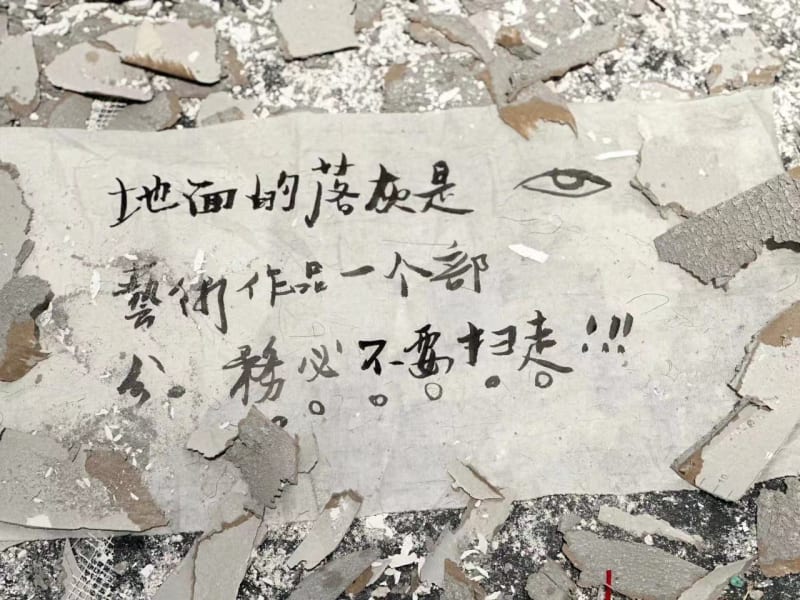 地面的落灰是
藝術作品一个部
分。務必不要扫走!!!